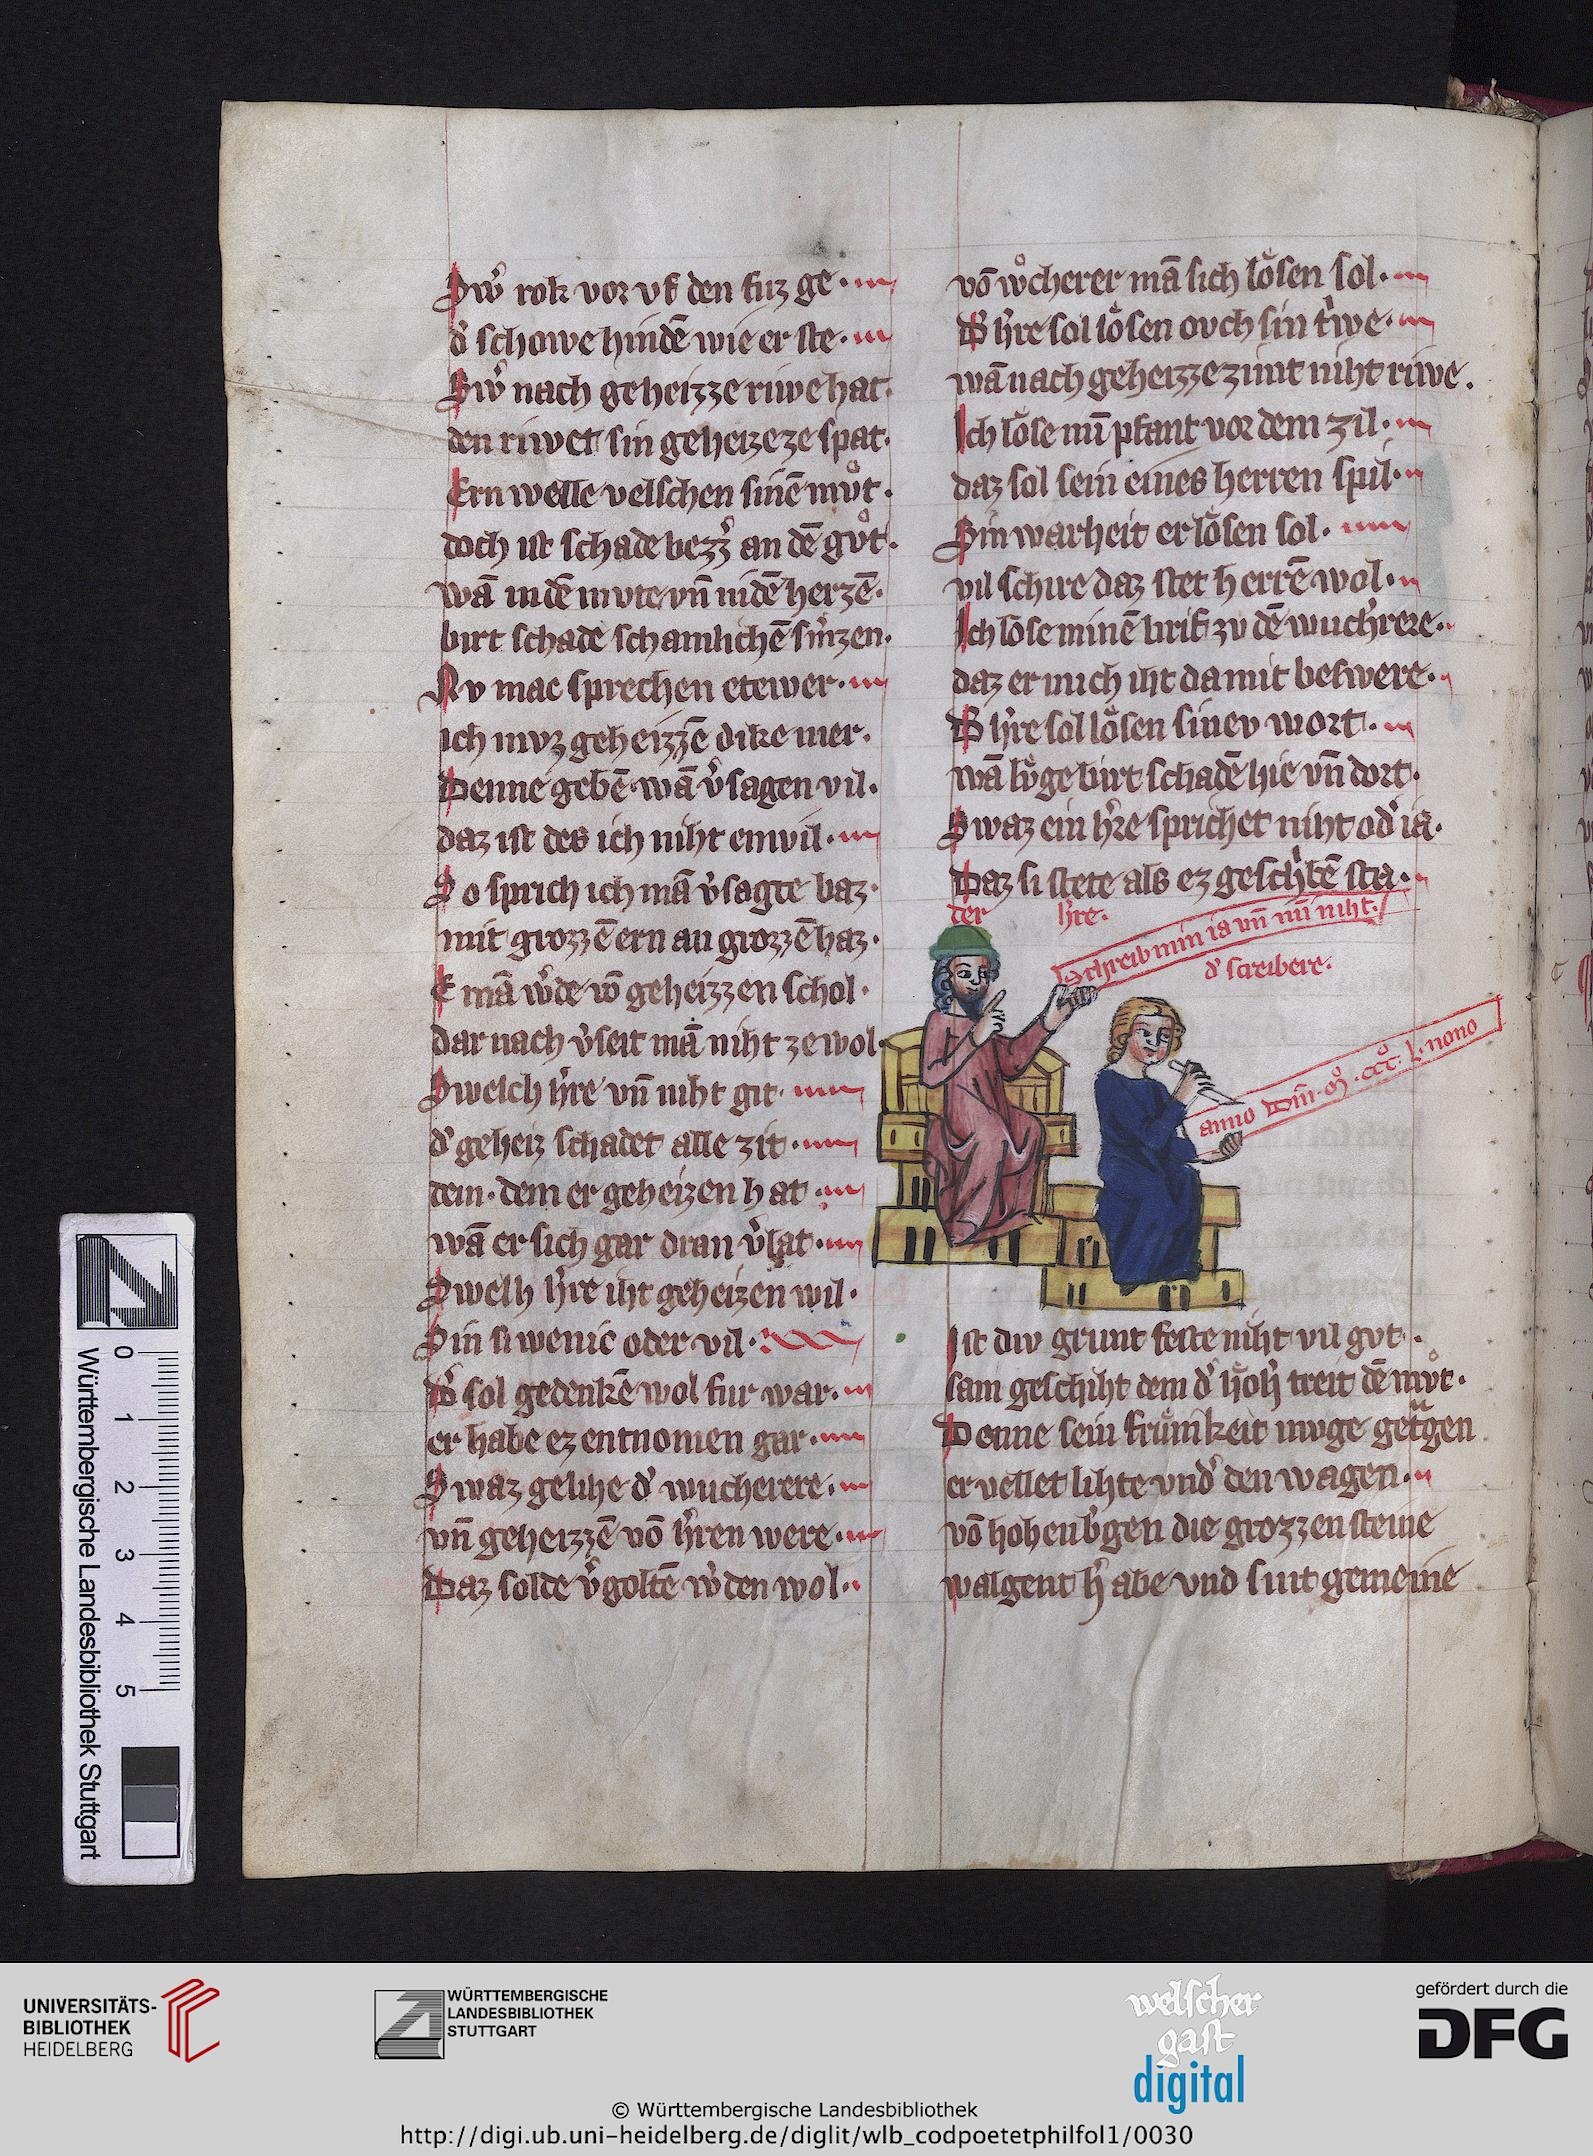 Sw᷒ rok vor vf den fuz ge·
d᷒ schowe hindē wie er ste·
Sw᷒ nach geheizze riwe hat·
den riwet sin geheizeze spat·
Ern welle velschen sinē mvͦt·
doch ist schade bezz᷒ an dē gvͦt·
wā in dē mvte vn̄ in dē herzē·
birt schade schamlichē sm᷒zen·
Nv mac sprechen etewer·
ich mvz geheizzē dike mer·
Denne gebē wā v᷒sagen vil·
daz ist des ich niht enwil·
So sprich ich mā v᷒sagte baz·
mit grozzē ern an grozzē haz·
E mā w᷒de vō geheizzen schol·
dar nach v᷒seit mā niht ze wol·
Swelch h᷒re vn̄ niht git·
d᷒ geheiz schadet alle zit·
dem· dem er geheizen hat·
wā er sich gar dran v᷒lat·
Swelh h᷒re iht geheizen wil·
Sin si wenic oder vil·
D᷒ sol gedenkē wol fur war·
er habe ez entnomen gar·
Swaz gelihe d᷒ wucherere·
vn̄ geheizzē vō h᷒ren were·
Daz solde v᷒goltē w᷒den wol·
vō wͦcherer mā sich loͤsen sol·
D᷒ h᷒re sol loͤsen ovch sin t᷒we·
wā nach geheizze zimt niht riwe.
Ich loͤse mī pfant vor dem zil·
daz sol sein eines herren spil·
Sin warheit er loͤsen sol·
vil schire daz stet herrē wol·
Ich lose minē brif zv dē wuch᷒rere·
daz er mich iht da mit beswere·
D᷒ h᷒re sol loͤsen sinev wort·
wā lvͤge birt schadē hie vn̄ dort·
Swaz ein h᷒re sprichet niht od᷒ ia·
Daz si stete als ez geschⁱbē sta·
der h᷒re·
Schreib min ia vn̄ mī niht·
d᷒ screibere·
anno dn̄i· mͦ· cccͦ· l· nono
Ist div grunt feste niht vil gvt·
sam geschiht dem d᷒ hoͤh᷒ treit dē mvͦt·
Denne sein frumͤkeit mvge getᵃgen
er vellet lihte vnd᷒ den wagen·
vō hohen b᷒gen die grozzen steine
walgent h᷒ abe vnd sint gemeine
Württembergische Landesbibliothek Stuttgart
0 1 2 3 4 5
UNIVERSITÄTS-
BIBLIOTHEK
HEIDELBERG
WÜRTTEMBERGISCHE
LANDESBIBLIOTHEK
STUTTGART
welscher
gast
digital
gefördert durch die
DFG
© Württembergische Landesbibliothek
http://digi.ub.uni-heidelberg.de/diglit/wlb_codpoetetphilfol1/0030